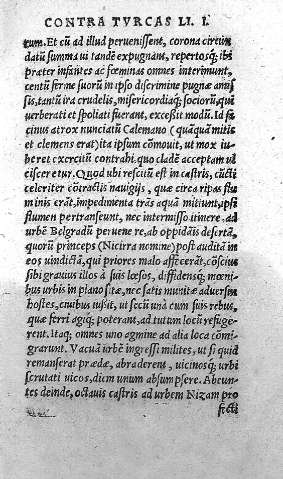 CONTRA TVRCAS LI. I.
rum. Et cũ ad illud peruenissent, corona circũ
datũ summa ui tandẽ expugnant, repertosq; ibi
præter infantes ac fœminas omnes interimunt,
centũ ferme suorũ in ipso discrimine pugnæ amis
sis, tantũ ira crudelis, misericordiaq; sociorũ, qui
uerberati et spoliati fuerant, excessit modũ. Id fa
cinus atrox nunciatũ Calemano (quãquã mitis
et clemens erat) ita ipsum cõmouit, ut mox iu-
beret exercitũ contrahi, quo cladẽ acceptam ul
cisceretur. Quod ubi rescitũ est in castris, cũcti
celeriter cõtractis nauigijs, quæ circa ripas flu
minis erãt, impedimenta trãs aquã mittunt, ipsi
flumen pertranseunt, nec intermisso itinere, ad
urbẽ Belgradũ peruenere, ab oppidãis desertã,
quorũ princeps (Nicirra nomine) post auditã in
eos uindictã, qui priores malo affecerãt, cõscius
sibi grauius illos à suis læsos, diffidensq; mœni
bus urbis in plano sitæ, nec satis munitæ aduersus
hostes, ciuibus iussit, ut secũ unà cum suis rebus,
quæ ferri agiq; poterant, ad tutum locũ refuge
rent. Itaq; omnes uno agmine ad alia loca cõmi
grarunt. Vacuã urbẽ ingressi milites, ut si quid
remanserat prædæ, abraderent, uicinosq; urbi
scrutati uicos, diem unum absumpsere. Abeun-
tes deinde, octauis castris ad urbem Nizam pro
fecti